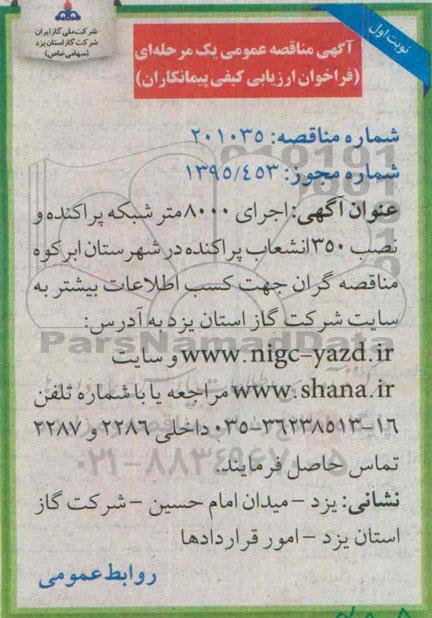 شرکت ملی گاز ایران
شرکت گاز استان یزد
(سهامی خاص)
نوبت اول
آگهی مناقصه عمومی یک مرحله‌ای
(فراخوان ارزیابی کیفی پیمانکاران)
شماره مناقصه: ۲۰۱۰۳۵
شماره مجوز: ۱۳۹۵/۴۵۳
عنوان آگهی: اجرای ۸۰۰۰ متر شبکه پراکنده و
نصب ۳۵۰ انشعاب پراکنده در شهرستان ابرکوه
مناقصه گران جهت کسب اطلاعات بیشتر به
سایت شرکت گاز استان یزد به آدرس:
www.nigc-yazd.ir و سایت
www.shana.ir مراجعه یا با شماره تلفن
۱۶-۳۶۲۳۸۵۱۳-۰۳۵ داخلی ۲۲۸۶ و ۲۲۸۷
تماس حاصل فرمایند.
نشانی: یزد - میدان امام حسین - شرکت گاز
استان یزد - امور قراردادها
روابط عمومی
ParsNamadData